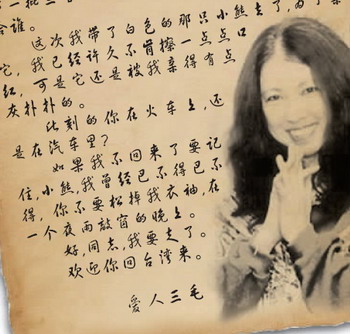 一批三
合谁。
这次我带了白色的那只小熊去了,为了亲
它,我已经许久不肯擦一点点口
红,可是它还是被我亲得有点
灰扑扑的。
此刻的你在火车上,还
是在汽车里?
如果我不回来了要记
住,小熊,我曾经已不得已不
得,你不要松掉我衣袖,在
一个夜雨敲窗的晚上。
好,同志,我要走了。
欢迎你回台湾来。
爱人三毛